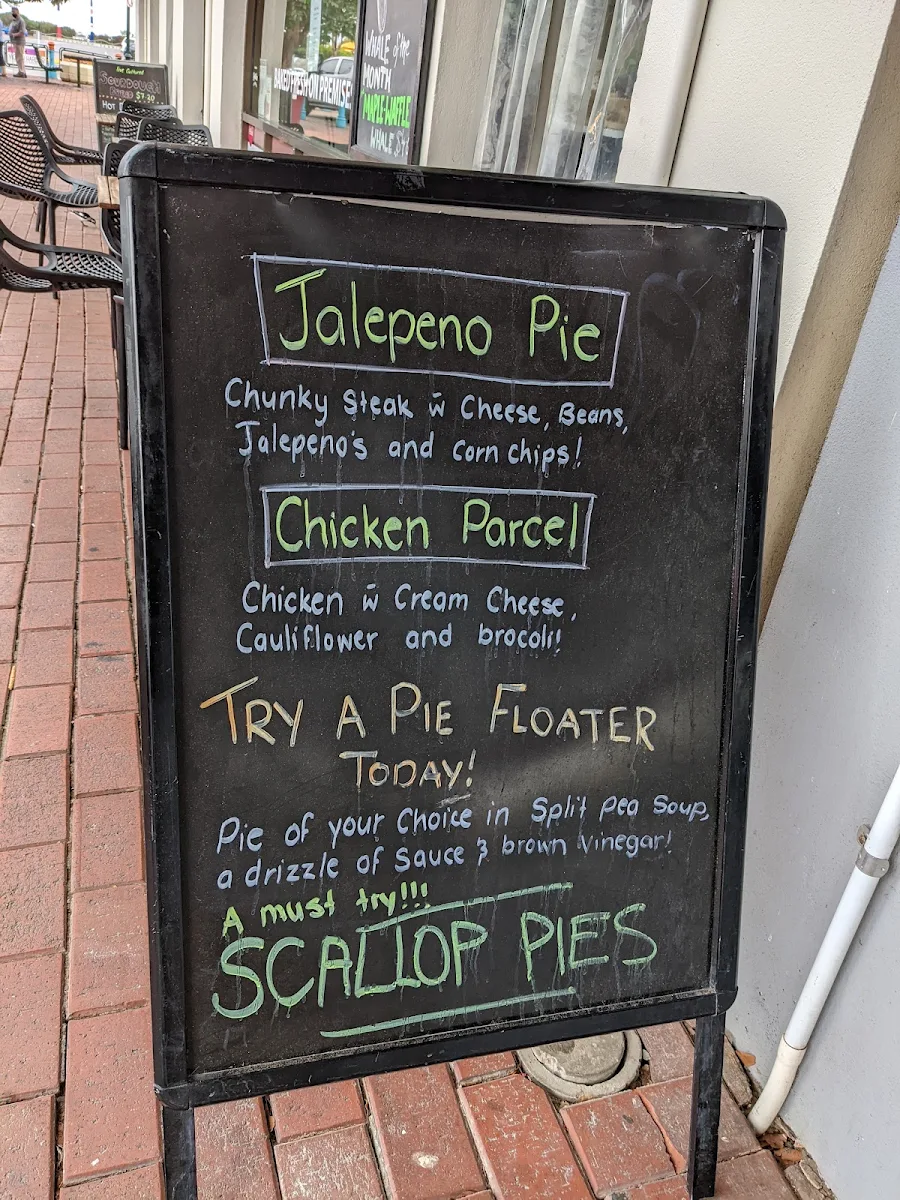 Live Cultured
SOURDOUGH
$7.20
Hot
BAKED FRESH ON PREMISE
WHALE of the
MONTH
MAPLE-WAFFLE
WHALE
Jalepeno Pie
Chunky Steak w̄ Cheese, Beans,
Jalepeno's and corn chips!
Chicken Parcel
Chicken w̄ Cream Cheese,
Cauliflower and brocoli!
TRY A PIE FLOATER
TODAY!
Pie of your choice in Split Pea Soup,
a drizzle of sauce & brown vinegar!
A must try!!!
SCALLOP PIES